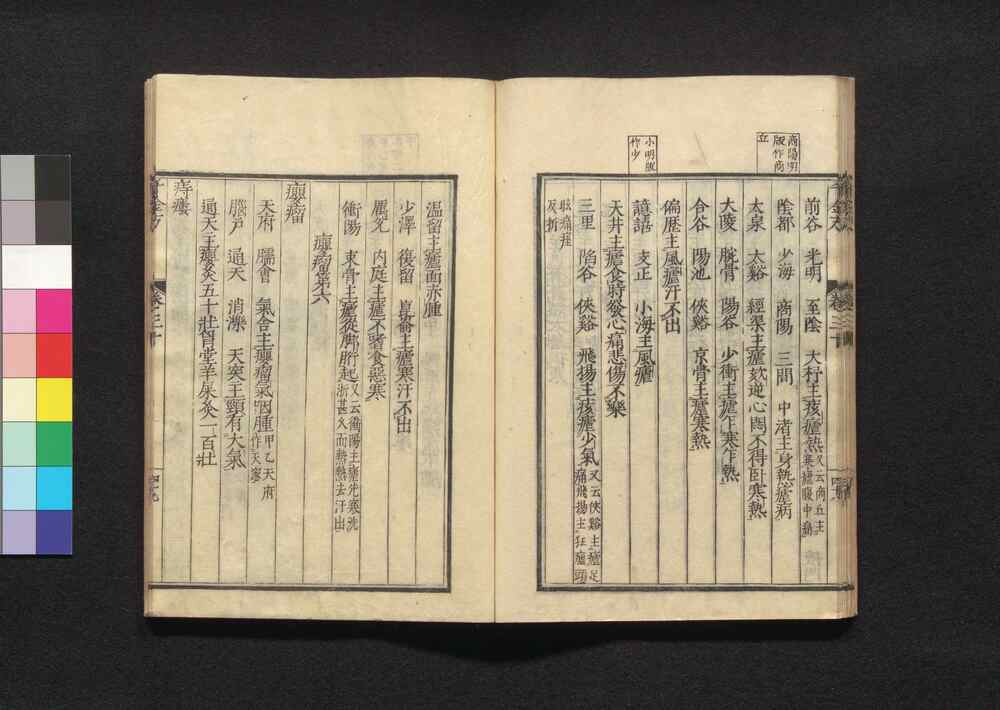 商陽明
版作商
立
小明版
作少
前谷　光明　至陰　大杼主痎瘧熱又云商丘主
寒瘧腹中痛
陰都　少海　商陽　三間　中渚主身熱瘧病
太泉　太谿　經渠主瘧欬逆心悶不得臥寒熱
大陵　腕骨　陽谷　少衝主瘧乍寒乍熱
合谷　陽池　俠谿　京骨主瘧寒熱
偏歷主風瘧汗不出
譩譆　支正　小海主風瘧
天井主瘧食時發心痛悲傷不樂
三里　陷谷　俠谿　飛揚主痎瘧少氣又云俠谿主瘧足
痛飛揚主狂瘧頭
眩痛痓
反折
千金方
卷三十
溫留主瘧面赤腫
少澤　復留　崑崙主瘧寒汗不出
厲兌　內庭主瘧不嗜食惡寒
衝陽　束骨主瘧從脚胻起又云衝陽主瘧先寒洗
淅甚久而熱熱去汗出
癭瘤
癭瘤第六
天府　臑會　氣舍主癭瘤氣咽腫甲乙天府
作天窻
腦戶　通天　消濼　天突主頸有大氣
通天主癭灸五十壯胷堂羊屎灸一百壯
痔瘻
千金方
卷三十
四十九